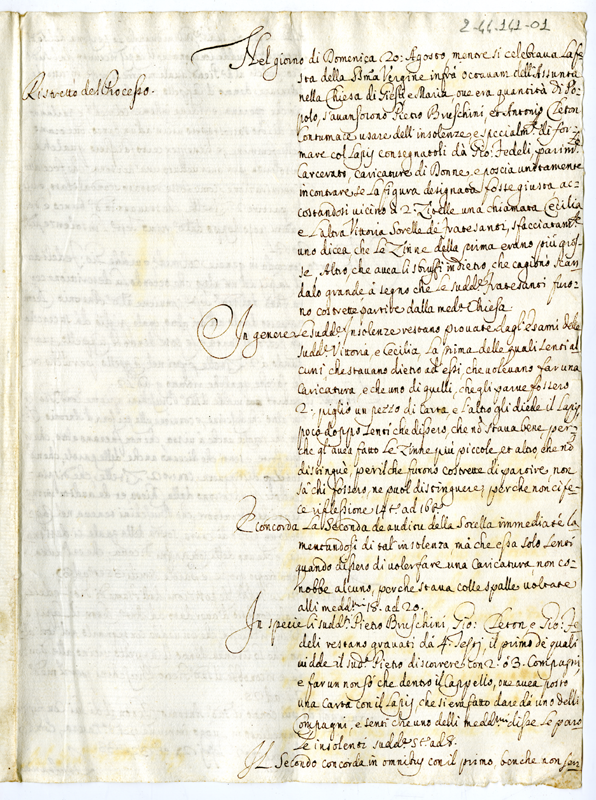 2-44-141-01
Ristretto del Processo.
Nel giorno di Domenica 20: Agosto, mentre si celebrava La fe
sta della SSma Vergine infra octavam dell'Assunta
nella Chiesa di Giesù e Maria, ove era quantità di Po
polo, s'avanzorono Pietro Bruschini, et Antonio Cleton
Contumace usare dell'insolenze e specialmte di for
mare col Lapis consegnatoli dà Gio: Fedeli, parimte
Carcerato, caricature di Donne, e poscia unitamente
incontrare se La figura designata fosse giusta ac
costandosi vicino à 2 Zitelle una chiamata Cecilia
e L'altra Vittoria Sorelle de Fratesanti, sfacciatamte
uno dicea che Le Zinne della prima erano più gros
se, Altro che avea li sbruffi indietro, che cagionò scan
dalo grande à segno che Le sudde Fratesanti furo
no costrette partire dalla medma Chiesa
In genere Le sudde Insolenze restano provate dagl'esami delle
sudde Vittoria, e Cecilia. La prima delle quali Sentì al
cuni che stavano dietro ad essi, che volevano far una
Caricatura, e che uno di quelli, che gli parve fossero
2: pigliò un pezzo di Carta, e L'altro gli diede il Lapis
poco doppo Sentì che dissero, che nò stava bene, per
che gl'avea fatto Le Zinne più piccole, et altro che nò
distinguè, per il che furono costrette di partire, non
sà chi fossero, ne puol distinguere, perche non ci fe
ce riflessione 14 ad 16
E concorda La Seconda de auditu della Sorella immediatè la
mentandosi di tal insolenza mà che essa solo Sentì
quando dissero di voler fare una Caricatura non co
nobbe alcuno, perche stava colle spalle voltate
alli medmi 18. ad 20.
In specie li suddi Pietro Bruschini, Gio: Cleton e Gio: Fe
deli restano gravati dà 4. Testj, il primo de quali
vidde il sudo Pietro discorrere con 2. ò 3. Compagni,
e far un non sò che dentro il Cappello, ove avea posto
una Carta con il Lapis, che si era fatto dare dà uno delli
Compagni, e sentì che uno delli medmi disse Le paro
Le insolenti sudde 5 ad 8.
Il Secondo concorda in omnibus con il primo, benche non sen